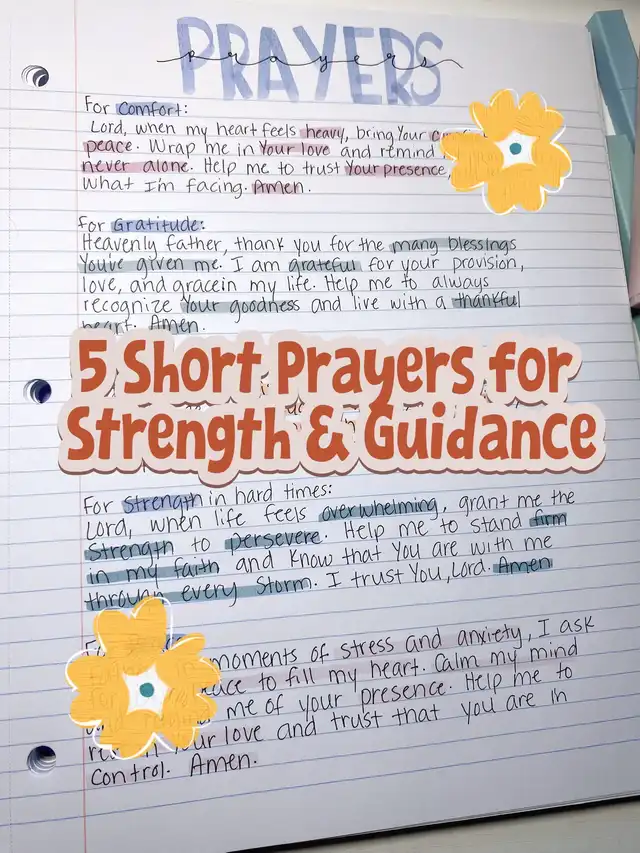 PRAYERS
prayers
For Comfort:
Lord, when my heart feels heavy, bring Your
peace. Wrap me in Your love and remind
never alone. Help me to trust Your presence
what I'm facing. Amen.
For Gratitude:
Heavenly father, thank you for the many blessings
You've given me. I am grateful for your provision,
love, and gracein my life. Help me to always
recognize Your goodness and live with a thankful
heart. Amen.
5 Short Prayers for
Strength & Guidance
For Strength in hard times:
Lord, when life feels overwhelming, grant me the
Strength to persevere. Help me to stand firm
in my faith and know that You are with me
through every Storm. I trust You, Lord. Amen
moments of stress and anxiety, I ask
to fill my heart. Calm my mind
me of your presence. Help me to
your love and trust that you are in
control. Amen.